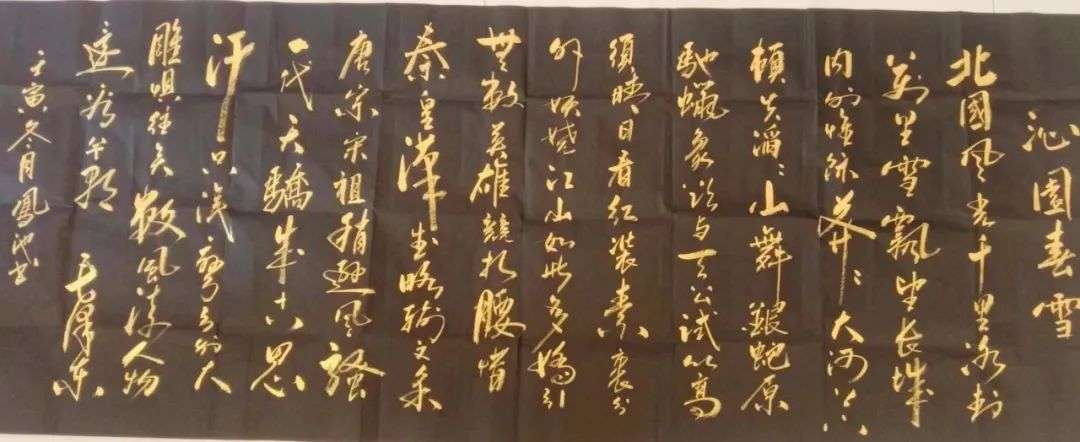 沁園春雪
北國风光千里冰封
萬里雪飄望长城
内外惟餘莽〻大河上下
頓失滔〻山舞銀蛇原
馳蠟象欲与天公试比高
須晴日看红装素裹分
外妖娆江山如此多嬌引
無數英雄競折腰惜
秦皇漢武略输文采
唐宗宋祖稍遜风騷
一代天驕成吉思
汗只識彎弓射大
雕俱往矣數风流人物
还看今朝 毛澤东
壬寅冬月鳳池书